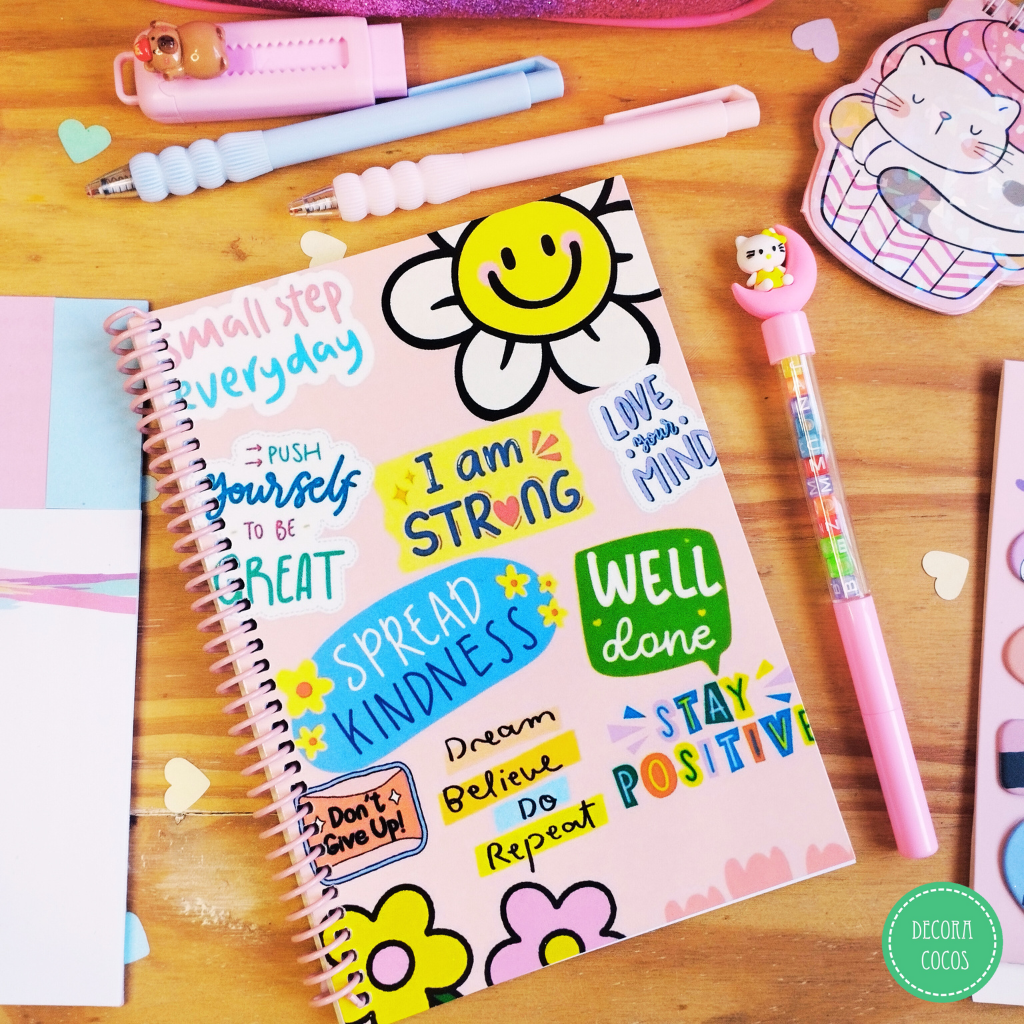 small step
everyday
→ PUSH
yourself
TO BE
GREAT
I am
STRONG
LOVE
your
MIND
SPREAD
KINDNESS
WELL
done
Dream
Believe
Do
Repeat
STAY
POSITIVE
Don't
Give Up!
DECORA
COCOS